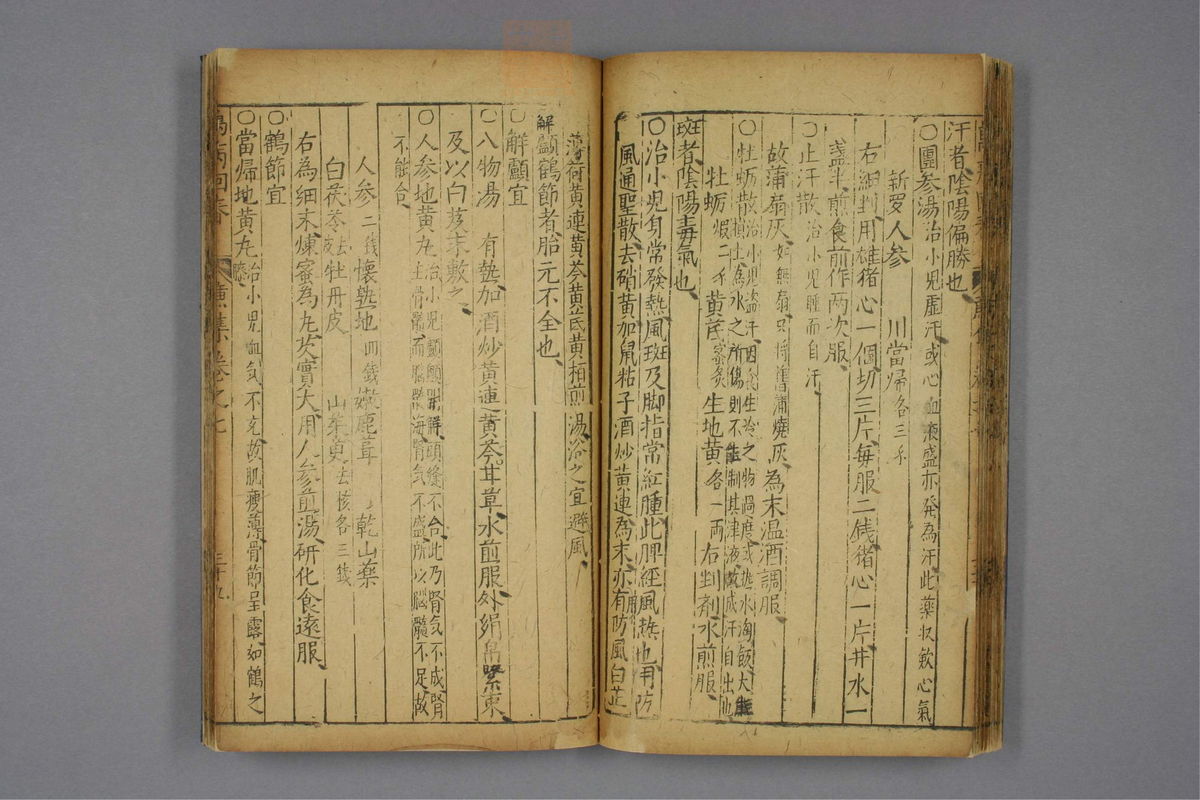 汗者、陰陽偏勝也、
○團參湯 治小児虛汗、或心血液盛亦発為汗、此藥收歛心氣
新罗人参 川當歸各三
右細剉、用雄猪心一個切三片、每服二銭、猪心一片、井水一
盞半煎、食前作両次服、
○止汗散 治小児睡而自汗、
故蒲扇灰 如無扇只将蒲燒灰、為末温酒調服、
○牡蛎散 治小児盗汗、因食生冷之物過度、或熱水淘飯、大
損土為水之所傷、則不能制其津液、故成汗自出也
牡蛎 煆二 黄芪 蜜炙 生地黄 各一両 右剉剤、水煎服、
斑者、陰陽毒氣也、
○治小児身常發熱、風斑及脚指常紅腫、此脾經風熱也、用防
風通聖散、去硝黄、加鼠粘子、酒炒黄連為末、亦有用防風白芷
薄荷黄連黄芩黄芪黄栢煎湯浴之、宜避風、
解顱鶴節者、胎元不全也、
○解顱宜
○八物湯 有熱加酒炒黄連黄芩甘草、水煎服、外絹帛緊束、
及以白蔹末敷之、
○人参地黄丸 治小児顱顖開解、頭縫不合、此乃腎気不成、腎
主骨髓、而腦為髓海、腎気不盛、所以腦髓不足、故
不能合、
人参 二銭 懐熟地 四銭 嫩鹿茸 乾山藥
白茯苓 去皮 牡丹皮 山茱萸 去核各三銭
右為細末、煉蜜為丸、芡實大、用人参煎湯研化、食遠服、
○鶴節宜
○當歸地黄丸 治小児血気不充、故肌瘦薄、骨節呈露、如鶴之
膝、
萬病回春 廣集卷之七 三十五